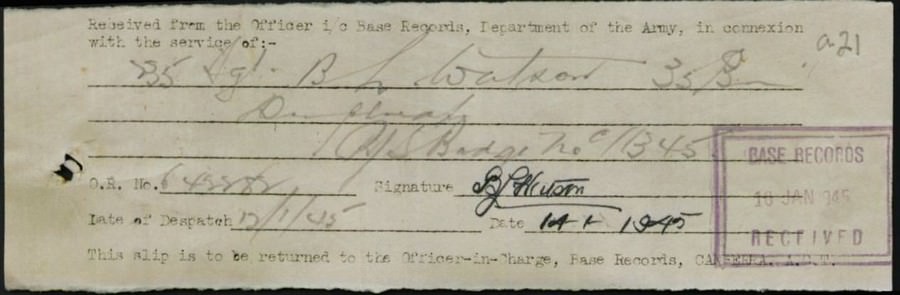 Received from the Officer i/c Base Records, Department of the Army, in connexion
with the service of:-
a.21
235 Sgt. B L Watson 35 Bn
Duplicate
R/S Badge No C/1345
O.R. No. 64882 Signature B L Watson
Date of Despatch 12/1/45 Date 14 1 1945
BASE RECORDS
18 JAN 1945
RECEIVED
This slip is to be returned to the Officer-in-Charge, Base Records, CANBERRA. A.C.T.